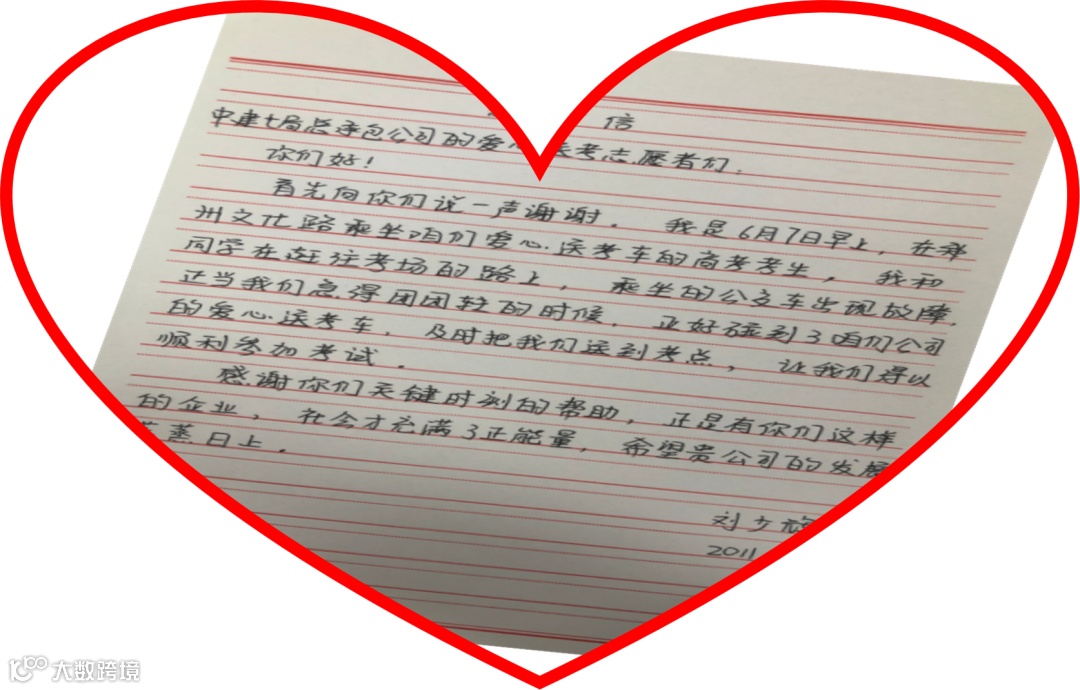 信
中建七局总承包公司的爱心送考志愿者们.
你们好!
首先向你们说一声谢谢. 我是6月7日早上, 在郑
州文化路乘坐咱们爱心送考车的高考考生, 我和
同学在赶往考场的路上, 乘坐的公交车出现故障,
正当我们急得团团转的时候. 正好碰到了咱们公司
的爱心送考车. 及时把我们送到考点, 让我们得以
顺利参加考试.
感谢你们关键时刻的帮助, 正是有你们这样
的企业, 社会才充满了正能量, 希望贵公司的发展
蒸日上.
刘少
2011
大数跨境